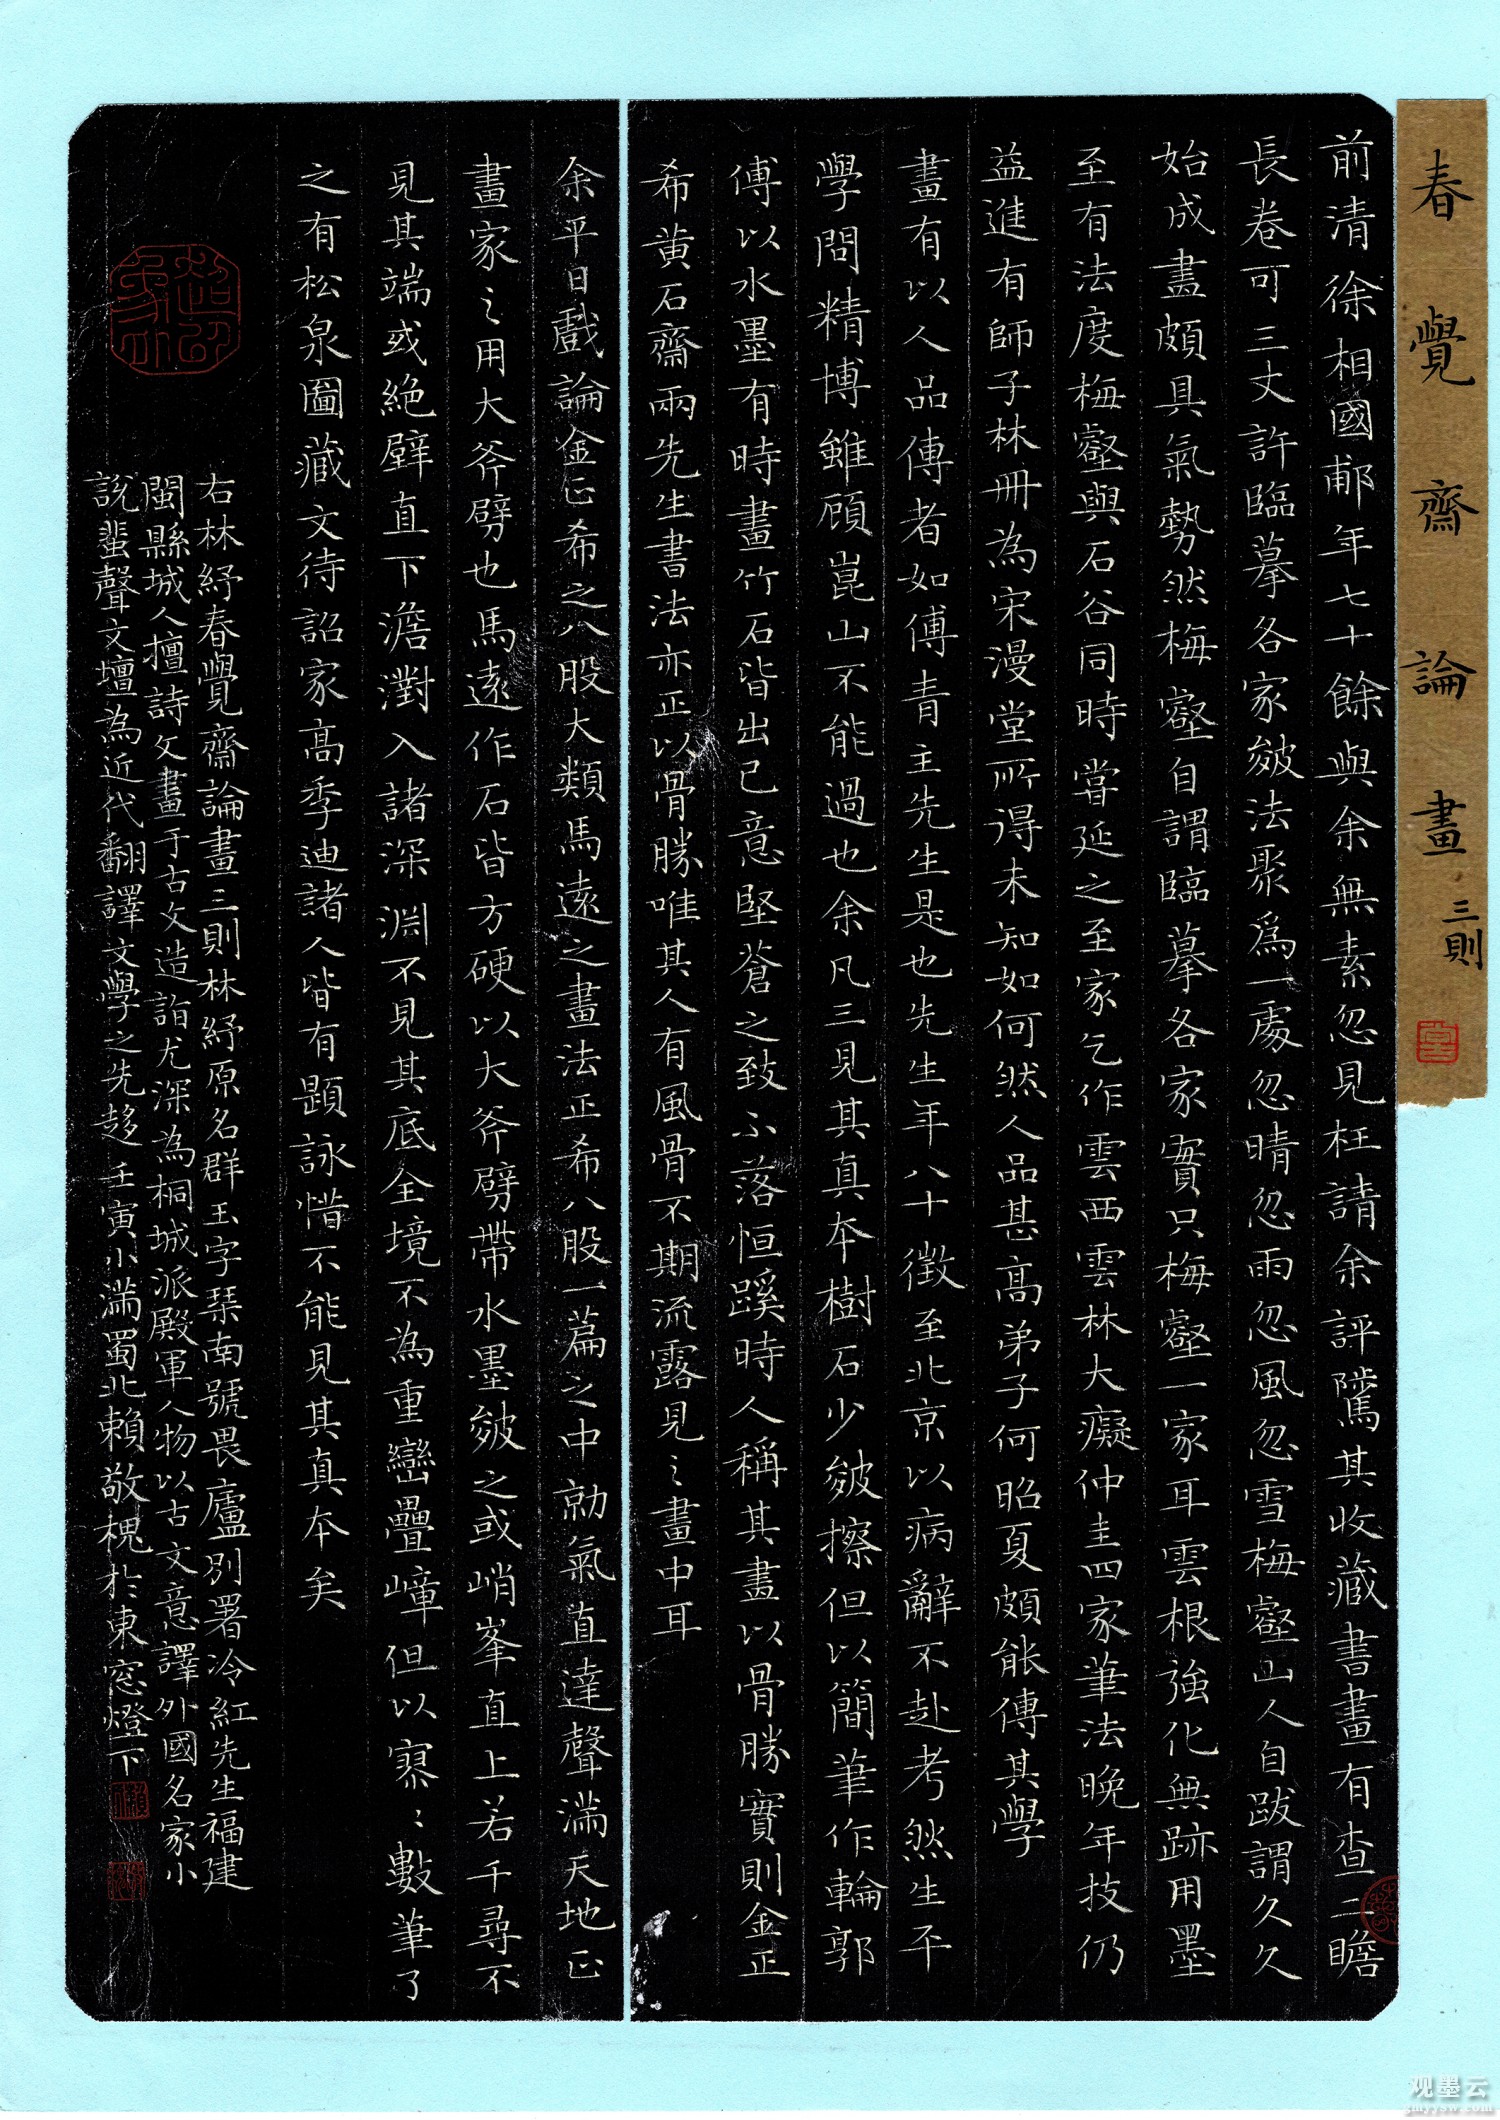 春覺齋論畫 三則
前清徐相國郙年七十餘與余無素忽見枉請余評騭其收藏書畫有查二瞻
長卷可三丈許臨摹各家皴法聚為一處忽晴忽雨忽風忽雪梅壑山人自跋謂久久
始成畫頗具氣勢然梅壑自謂臨摹各家實只梅壑一家耳雲根強化無跡用墨
至有法度梅壑與石谷同時嘗延之至家乞作雲西雲林大癡仲圭四家筆法晚年技仍
益進有師子林冊為宋漫堂所得未知如何然人品甚高弟子何昭夏頗能傳其學
畫有以人品傳者如傅青主先生是也先生年八十徵至北京以病辭不赴考然生平
學問精博雖顧崑山不能過也余凡三見其真本樹石少皴擦但以簡筆作輪郭
傅以水墨有時畫竹石皆出己意堅蒼之致不落恒蹊時人稱其畫以骨勝實則金正
希黃石齋兩先生書法亦正以骨勝唯其人有風骨不期流露見之畫中耳
余平日戲論金正希之八股大類馬遠之畫法正希八股一篇之中勍氣直達聲滿天地正
畫家之用大斧劈也馬遠作石皆方硬以大斧劈帶水墨皴之或峭峯直上若千尋不
見其端或絕壁直下澹瀩入諸深淵不見其底全境不為重巒疊嶂但以寥〻數筆了
之有松泉圖藏文待詔家高季迪諸人皆有題詠惜不能見其真本矣
右林紓春覺齋論畫三則林紓原名群玉字琴南號畏廬別署冷紅先生福建
閩縣城人擅詩文畫于古文造詣尤深為桐城派殿軍人物以古文意譯外國名家小
說蜚聲文壇為近代翻譯文學之先趍壬寅小滿蜀北賴敬槐於東窓燈下
观墨云
gmyysw.com